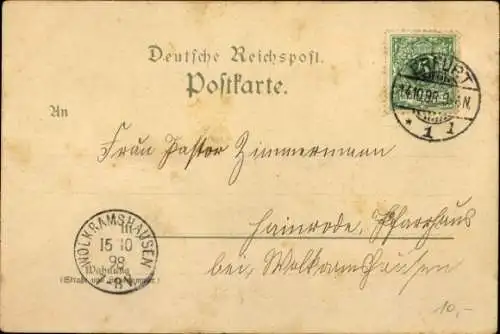 Deutsche Reichspost.
Postkarte.
ERFURT
14.10.98. 9-
* 1 1
An
Frau Pastor Zimmermann
Hainrode, Pfarrhaus
bei Wolkramshausen
WOLKRAMSHAUSEN
15 10
98
8
Wohnung
(Straße und
10,-